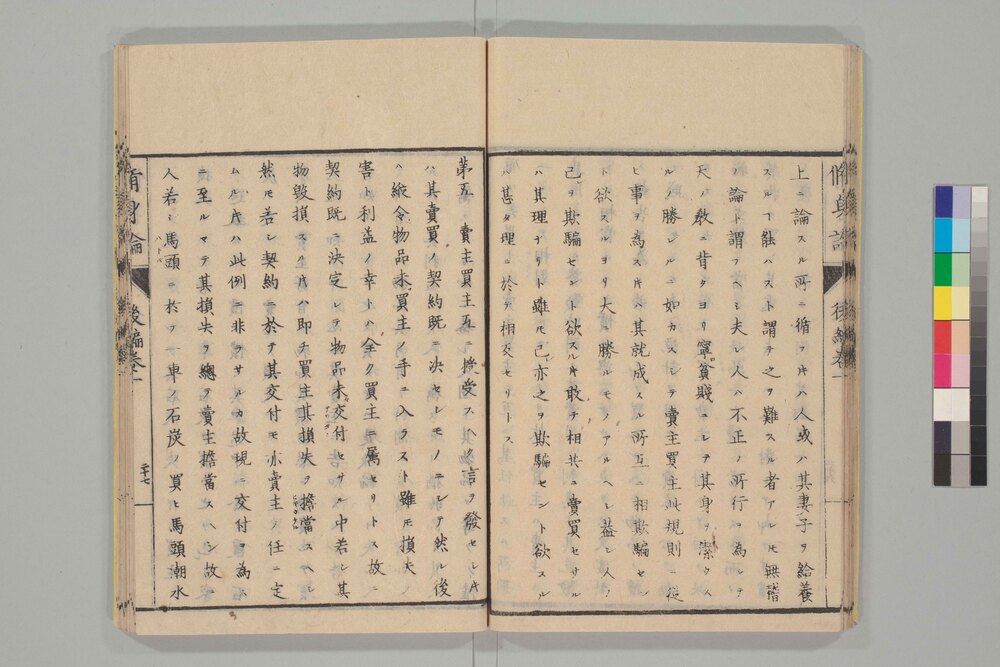 上ニ論スル所ニ循フ片ハ人或ハ其妻子ヲ給養
スルヿ能ハスト謂テ之ヲ難スル者アレ𪜈無稽
ノ論ト謂フヘシ夫レ人ハ不正ノ所行ヲ為シテ
天ノ教ニ背クヨリ寧貧賤ニシテ其身ヲ潔クス
ルノ勝レルニ如カスシテ賣主買主此規則ニ従
ヒ事ヲ為ス片ハ其就成ス所互ニ相欺騙セン
ト欲スルヨリ大ニ勝ルモノアルヘシ蓋シ人ノ
己ヲ欺騙セント欲スル片敢テ相共ニ賣買セサル
ハ其理ナリト雖モ己亦之ヲ欺騙セント欲スル
ハ甚タ理ニ於テ相交セリトス
第五 賣主買主互ニ授受スヘキ言ヲ發セシ片
ハ其賣買ノ契約既ニ決セシモノニシテ然ル後
ハ縦令物品未タ買主ノ手ニ入ラスト雖モ損失
害ト利益ノ幸トハ全ク買主ニ属セリトス故ニ
契約既ニ決定シテ物品未タ交付セサル中若シ其
物毀損スル片ハ即チ買主其損失ヲ擔當スヘシ
然モ若シ契約ニ於テ其交付モ亦賣主ノ任ニ定
ムル片ハ此例ニ非ラサルカ故現ニ交付ヲ為ス
ニ至ルマテ其損失ヲ總テ賣主擔當スヘシ故ニ
人若シ馬頭ニ於テ一車ノ石炭ヲ買ヒ馬頭潮水
脩身論 後編巻一
二十七